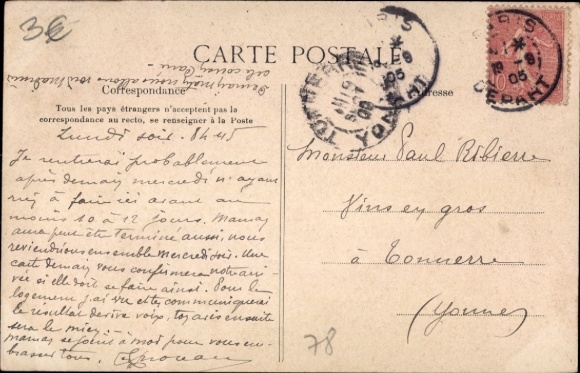 3€
CARTE POSTALE
Correspondance
Adresse
Tous les pays étrangers n'acceptent pas la
correspondance au recto, se renseigner à la Poste
PARIS
DEPART
05
TONNERRE
YONNE
PARIS
DEPART
05
Demain nous allons voir
Lundi soir. 8h45
Je rentrerai probablement
après demain mercredi n'ayant
rien à faire ici avant au
moins 10 à 12 jours. Maman
aura peut être terminé aussi, nous
reviendrions ensemble Mercredi soir. Une
carte demain vous confirmera notre arri-
vée si elle doit se faire ainsi. Pour le
logement j'ai vu et te communiquerai
le résultat de vive voix, tu ensuite
sera le mieux.
maman se joint à moi pour vous em-
brasser tous.
Monsieur Paul Ribierre
Vins en gros
à Tonnerre
(Yonne)
78